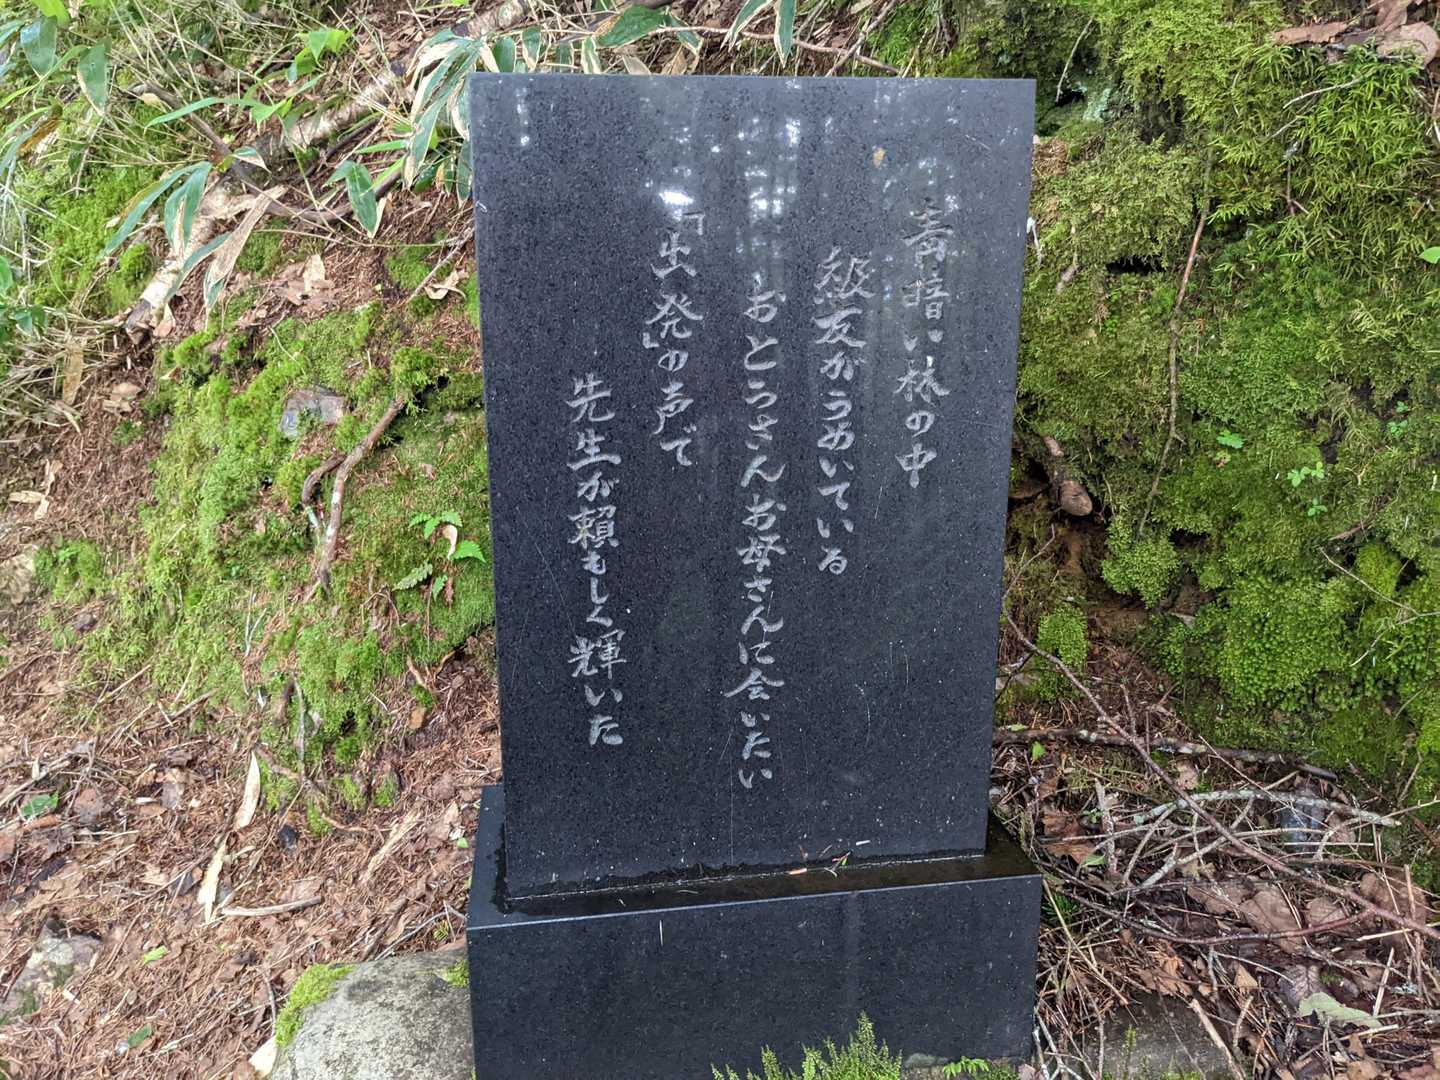 青暗い林の中
級友がうめいている
おとうさんお母さんに会いたい
「出発」の声で
先生が頼もしく輝いた